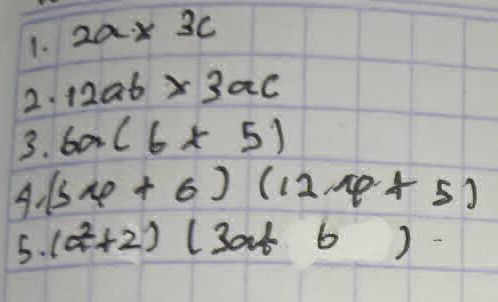 1. 2a x 3c
2. 12ab x 3ac
3. 6a ( 6 + 5 )
4. (3 xp + 6 ) (12 xp + 5 )
5. (a²+2) ( 3ab b )